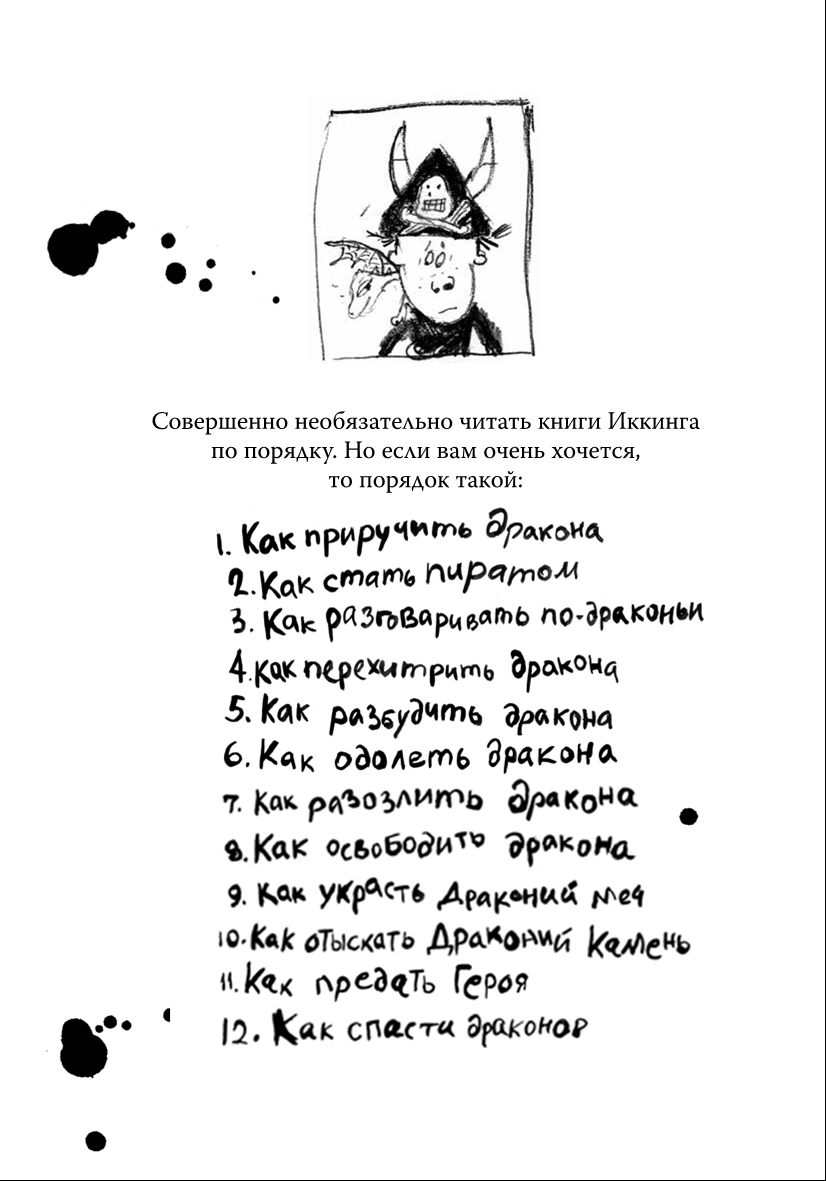 Совершенно необязательно читать книги Иккинга
по порядку. Но если вам очень хочется,
то порядок такой:
1. Как приручить дракона
2. Как стать пиратом
3. Как разговаривать по-драконьи
4. Как перехитрить дракона
5. Как разбудить дракона
6. Как одолеть дракона
7. Как разозлить дракона
8. Как освободить дракона
9. Как украсть Драконий меч
10. Как отыскать Драконий Камень
11. Как предать Героя
12. Как спасти драконов